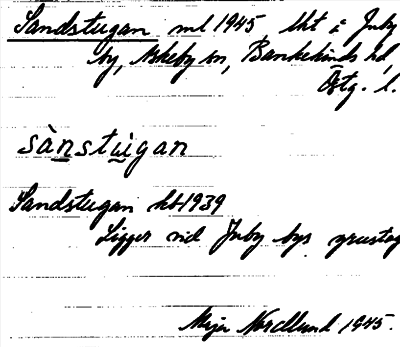 Sandstugan ml 1945, lht i Juby
by, Askeby sn, Bankekinds hd,
Östg. l.
sànstùgan
Sandstugan hbl 1939
Ligger vid Juby bys grustag
Maja Nordlund 1945.